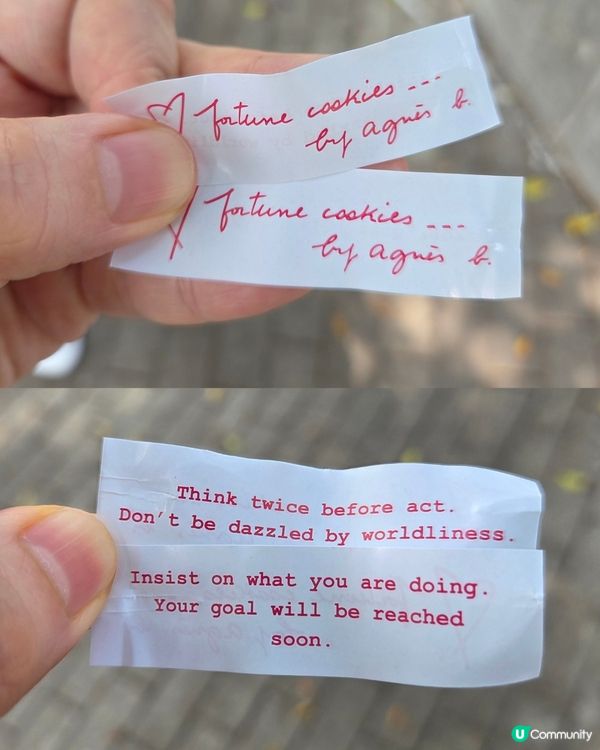 fortune cookies ---
by agnès b.
fortune cookies ---
by agnès b.
Think twice before act.
Don't be dazzled by worldliness.
Insist on what you are doing.
Your goal will be reached
soon.
U Community